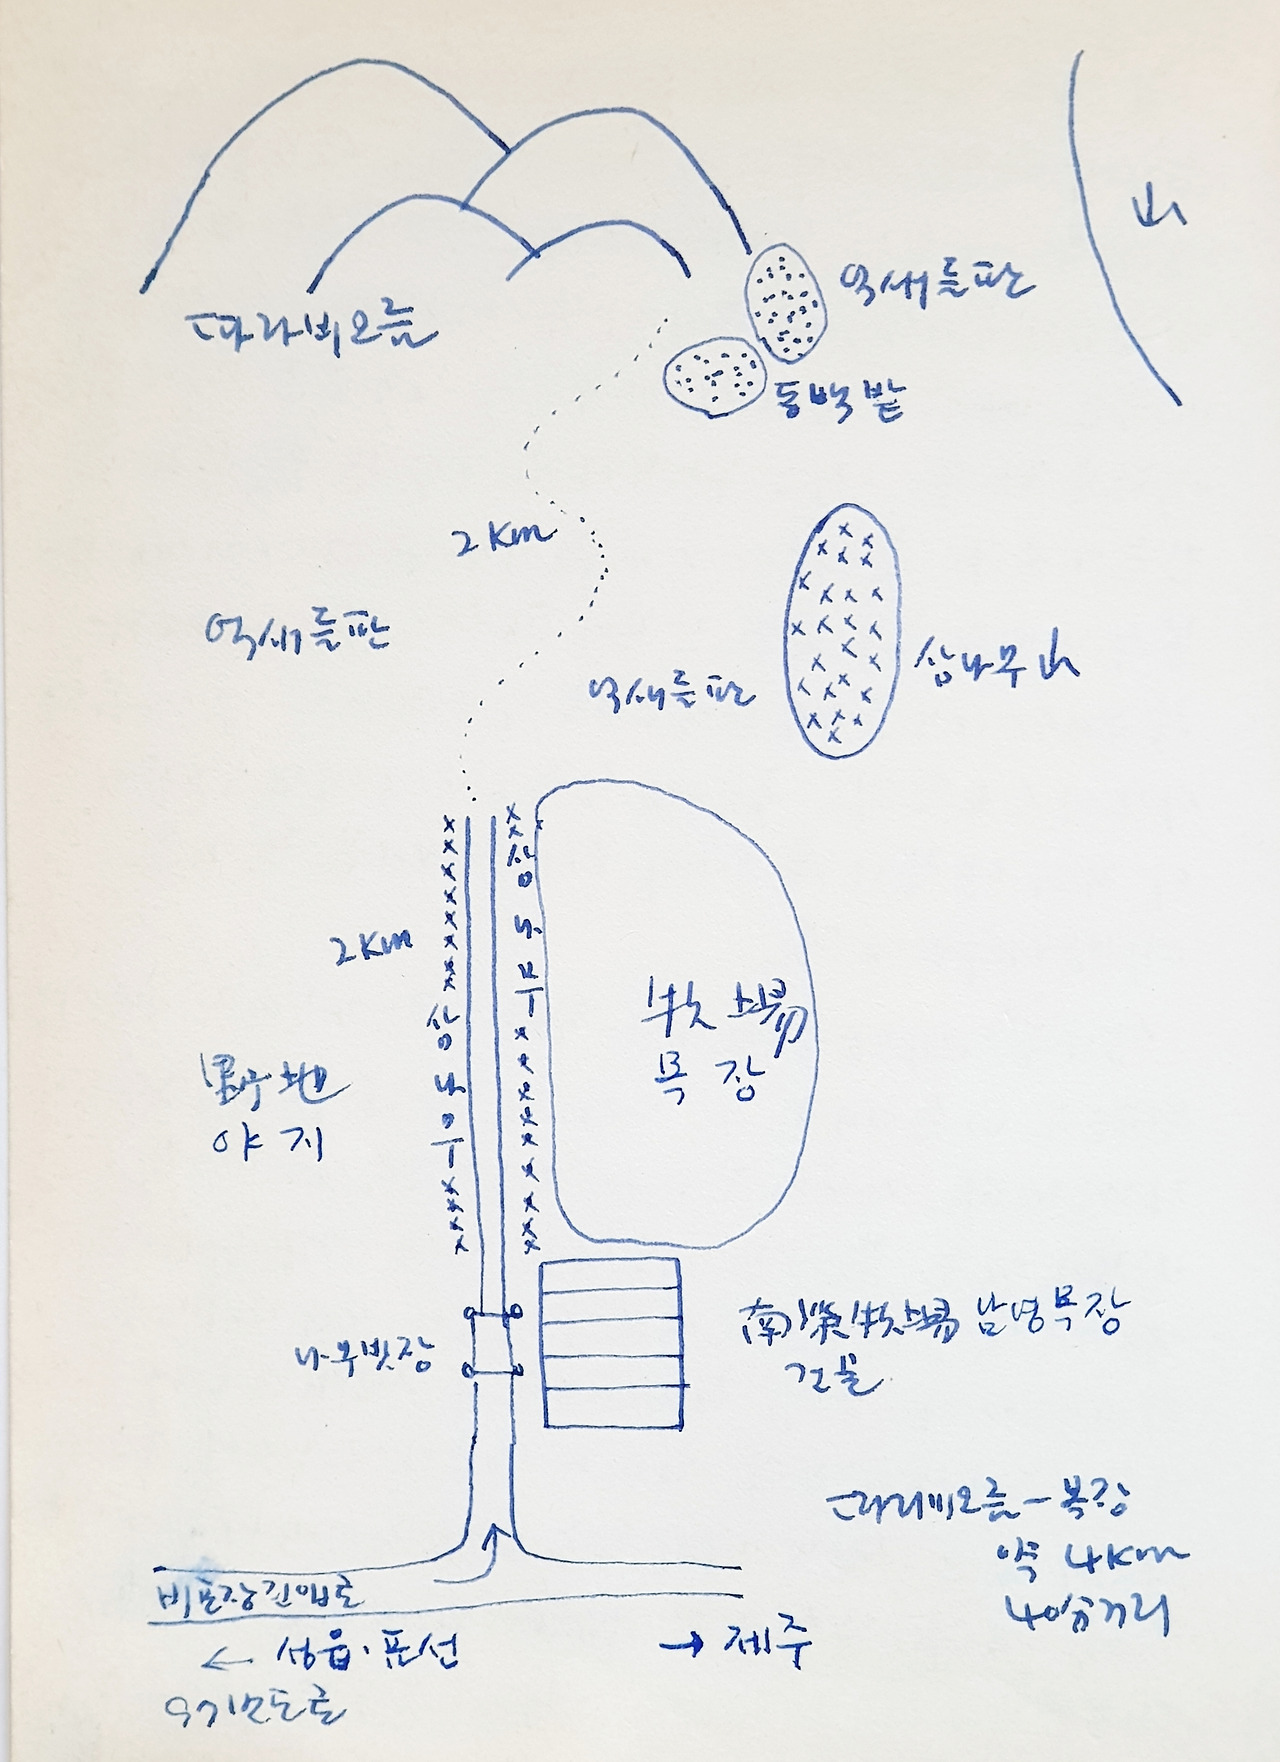 山
억새들판
따라비오름
동백밭
2Km
억새들판
억새들판
삼나무山
삼나무
2Km
삼나무
牧場
목장
野地
야지
南榮牧場 남영목장
건물
나무빗장
따라비오름-목장
약 4Km
40분거리
비포장진입로
← 성읍·표선
→ 제주